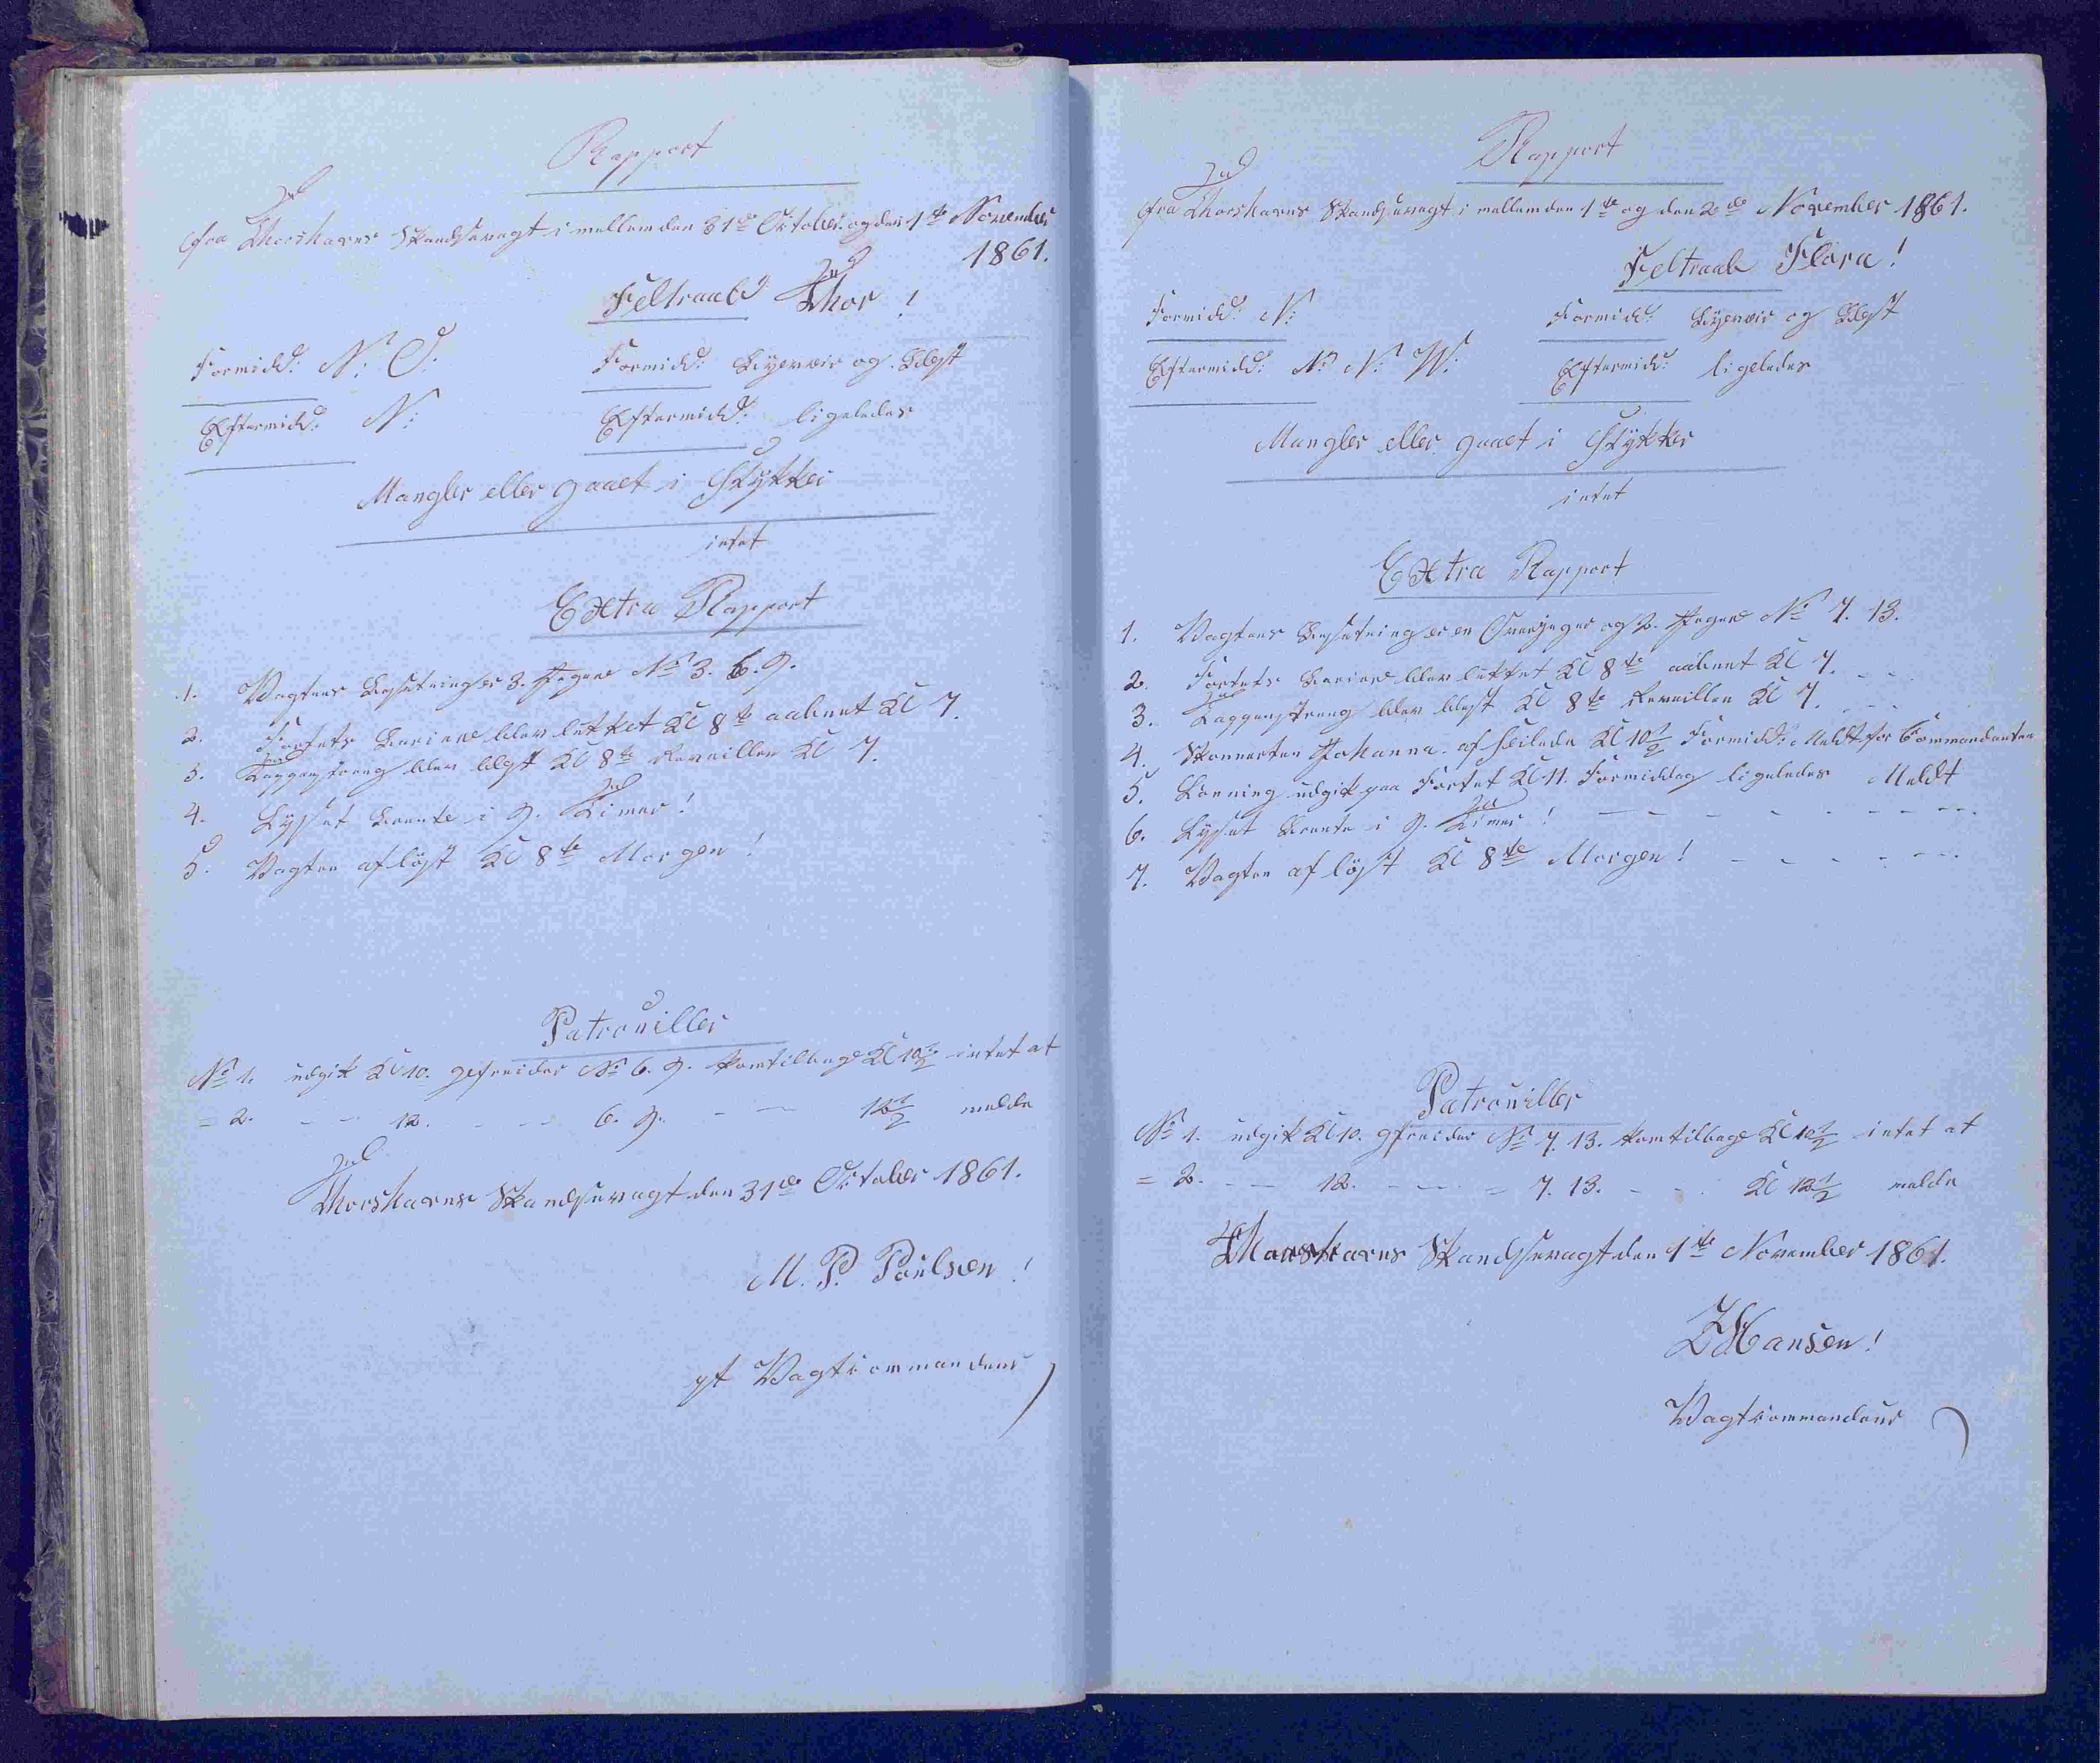 Rapport
fra Thorshavns Skandsevagt i mellem den 31te October og den 1te November
1861.
Feltraab Thor!
Formidd: N: O: Formidd: Byeveir og Blæst
Eftermidd: N: Eftermidd: ligeledes
Mangler eller gaaet i Stykker
intet
Extra Rapport
1. Vagtens Besetning er 3. Jegere No 3. 6. 9.
2. Fortets Bariere blev lukket Kl 8te aabnet Kl 7.
3. Tappenstreng blev blæst Kl 8te Reveillen Kl 7.
4. Lysset brente i 9. Timer!
5. Vagten afløst Kl 8te Morgen!
Patrouiller
No 1. udgik Kl 10. gefreider No 6. 9. kom tilbage Kl 10½ intet at
= 2. - - 12. - - - 6. 9. - - 12½ melde
Thorshavns Skandsevagt den 31te October 1861.
M. P. Poulsen!
Vagtcommandeur
Rapport
fra Thorshavns Skandsevagt i mellem den 1te og den 2de November 1861.
Feltraab Flora!
Formidd: N: Formidd: Byeveir og Blæst
Eftermidd: N: N: W: Eftermidd: ligeledes
Mangler eller gaaet i Stykker
intet
Extra Rapport
1. Vagtens Besetning er en Overjeger og 2. Jegere No 7. 13.
2. Fortets Bariere blev lukket Kl 8te aabnet Kl 7. - - -
3. Tappenstreng blev blæst Kl 8te Reveillen Kl 7. - - -
4. Skonnerten Johanna. af seilede Kl 10½ Formidd: Meldt for Commandanten
5. Lønning udgik paa Fortet Kl 11. Formiddag ligeledes Meldt
6. Lysset brente i 9. Timer! - - - - - - - -
7. Vagten af løst Kl 8te Morgen! - - - - - -
Patrouiller
No 1. udgik Kl 10. gfreider No 7. 13. kom tilbage Kl 10½ intet at
= 2. - - 12. - - - = 7. 13. - - - Kl 12½ melde
Thorshavns Skandsevagt den 1te November 1861.
Hansen!
Vagtcommandeur